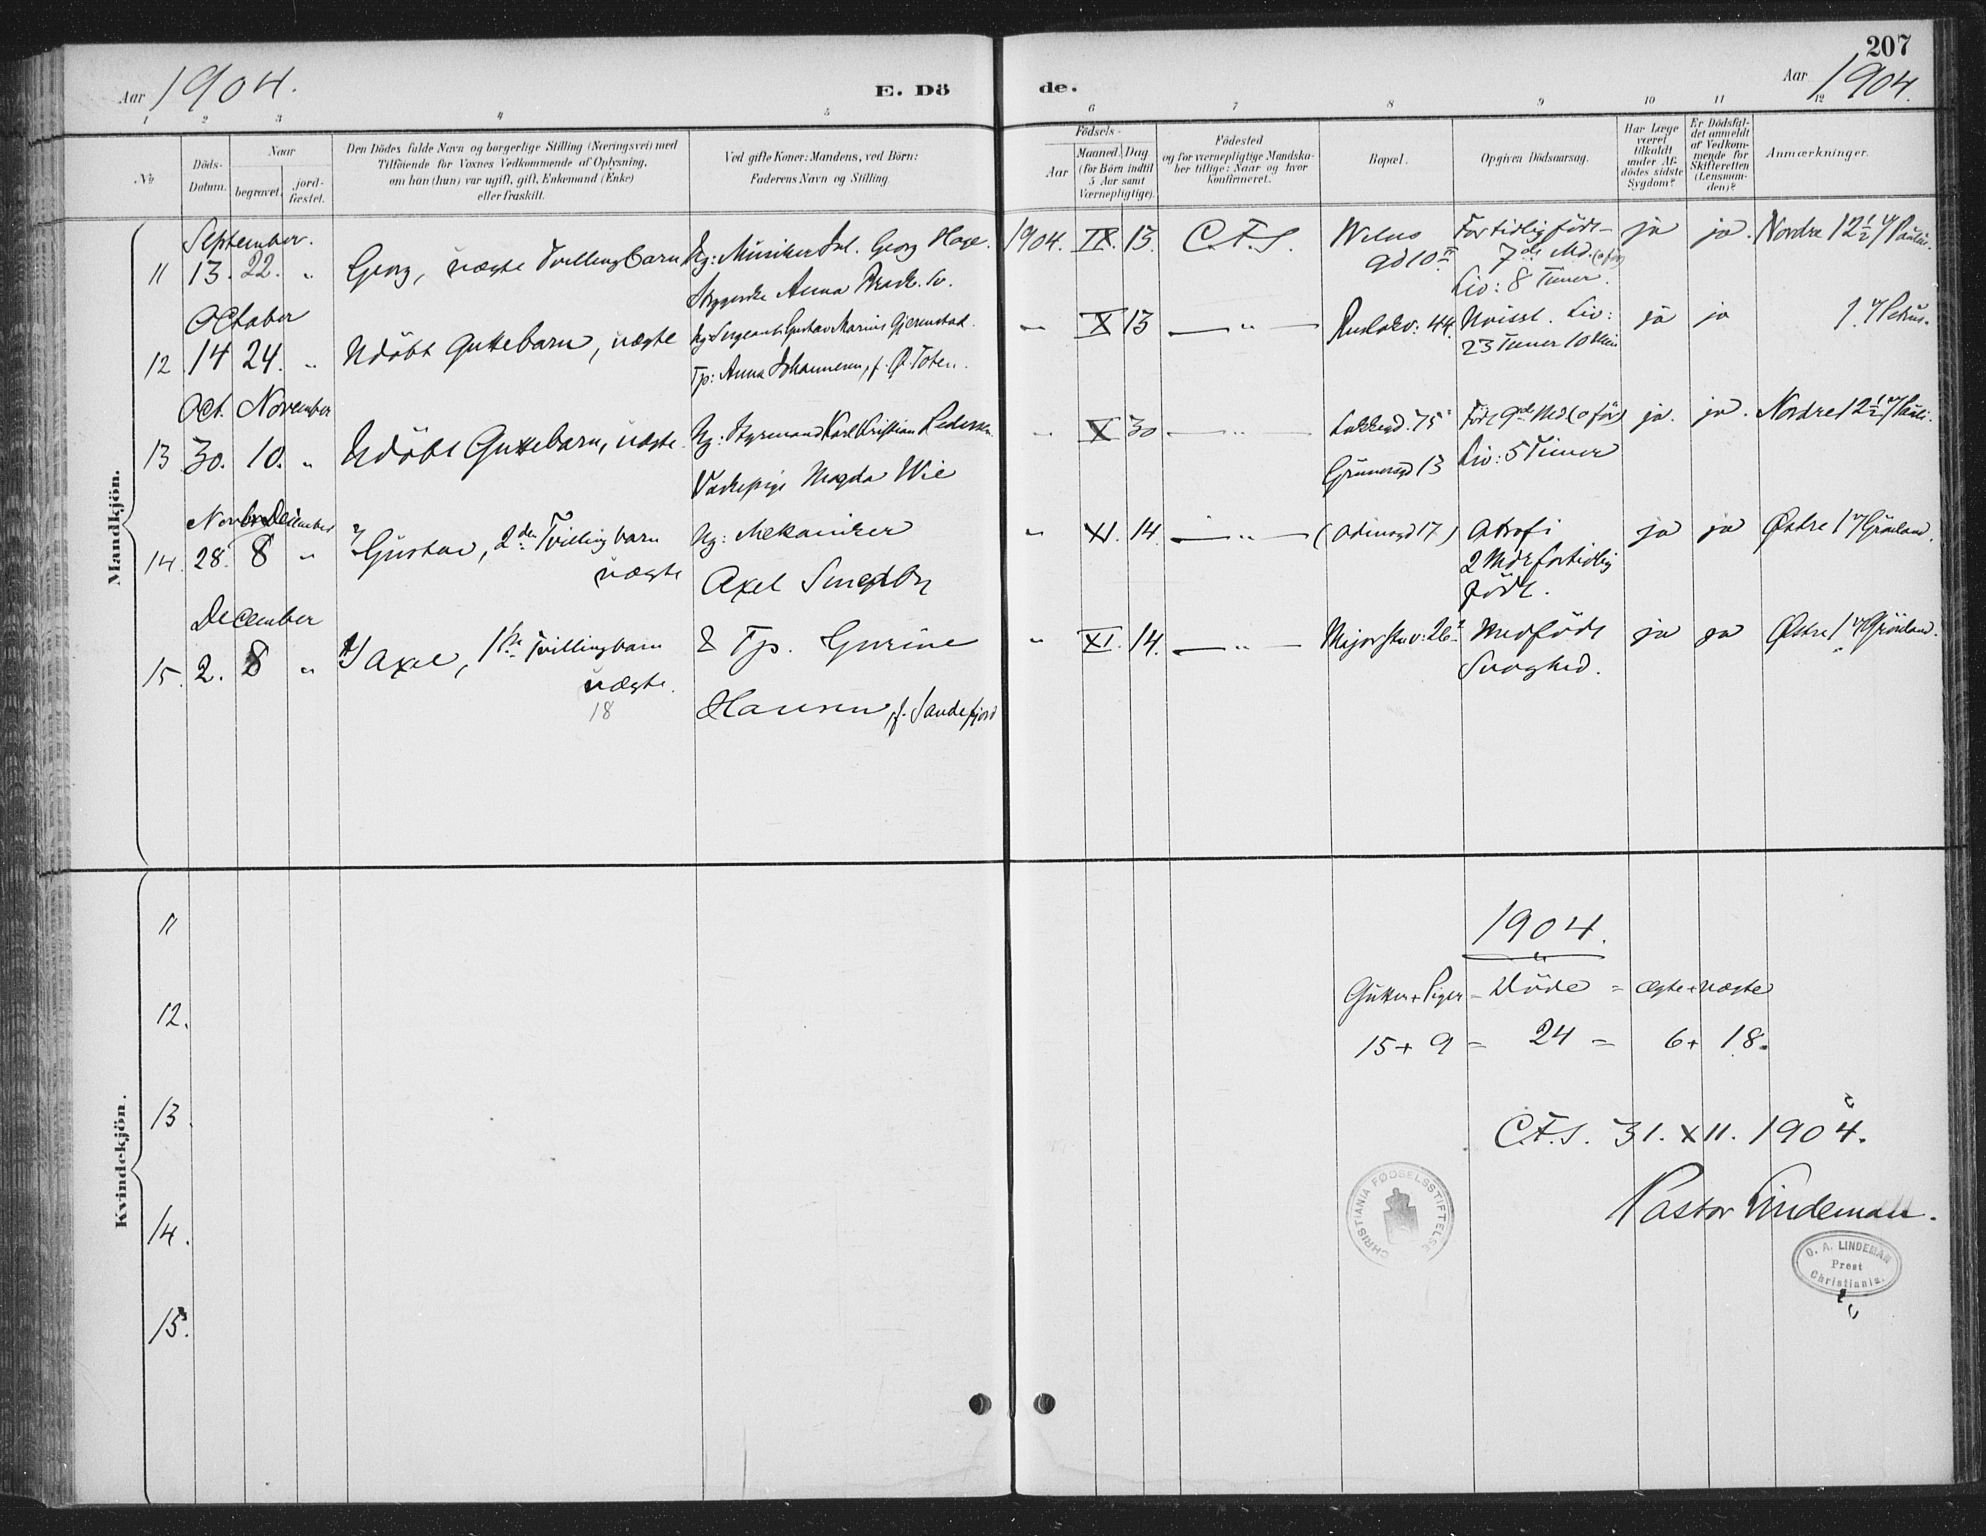 207
Aar 1904.
E. Döde.
Aar 1904.
1 2 3 4 5 6 7 8 9 10 11 12
No
Döds-Datum.
Naar
begravet.
jord-fæstet.
Den Dödes fulde Navn og borgerlige Stilling (Næringsvei) med
Tilföiende for Voxnes Vedkommende af Oplysning,
om han (hun) var ugift, gift, Enkemand (Enke)
eller fraskilt.
Ved gifte Koner: Mandens, ved Börn:
Faderens Navn og Stilling.
Födsels-
Aar
Maaned. Dag
(for Börn indtil
5 Aar samt
Værnepligtige).
Födested
og for værnepligtige Mandska-
ber tillige: Naar og hvor
konfirmeret.
Bopæl.
Opgiven Dödsaarsag.
Har Læge
været
tilkaldt
under Af-
dödes sidste
Sygdom?
Er Dödsfal-
det anmeldt
af Vedkom-
mende for
Skifteretten
(Lensman-
den)?
Anmærkninger.
Mandkjön.
September.
11 13. 22. " Georg, uægte Tvillingbarn
Ug: Musiker Georg Hage.
Anna
1904. IX. 13. C.F.S.
For tidlig födt
7de Md.
Liv: 8 Timer.
ja ja. Nordre 12½
October
12 14 24. " Udöbt Guttebarn, uægte
Ug: Sergeant Gustav Marius Gjerenstad.
Tp: Anna Johannesen, f. Ø. Toten.
" X 13 — " — 44. Liv:
23 Timer 10 Min
ja ja 1
Oct. November
13 30. 10. " Udöbt Guttebarn, uægte
Ug: Styrmand Karl Kristian Pedersen
Magda Wie
" X 30 — " — 75
Grünersgd 13
Födt 9de Md
Liv: 5 Timer
ja. ja. Nordre 12½
Novbr December
14. 28. 8 " 2/ Gustav, 2den Tvillingbarn
uægte
Ug: Mekaniker
Axel
" XI. 14. — " — (Odinsgd 17) Atrofi
2 Mdr fortidlig
födt.
ja ja Østre 1 Grönland.
December
15. 2. 8 " 1/ Axel, 1ste Tvillingbarn
uægte.
18
& Tp. Gurine
Hansen, f. Sandefjord
" XI. 14. — " — Majorstuv: 26 Medfödt
Svaghed.
ja ja Østre 1 Grönland.
Kvindekjön.
11
12.
13.
14.
15.
1904.
Gutter + Piger = Döde = ægte + uægte
15 + 9 = 24 = 6 + 18.
C.F.S. 31. XII. 1904.
Pastor Lindeman.
CHRISTIANIA FØDSELSSTIFTELSE
O. A. LINDEMAN
Prest
Christiania.